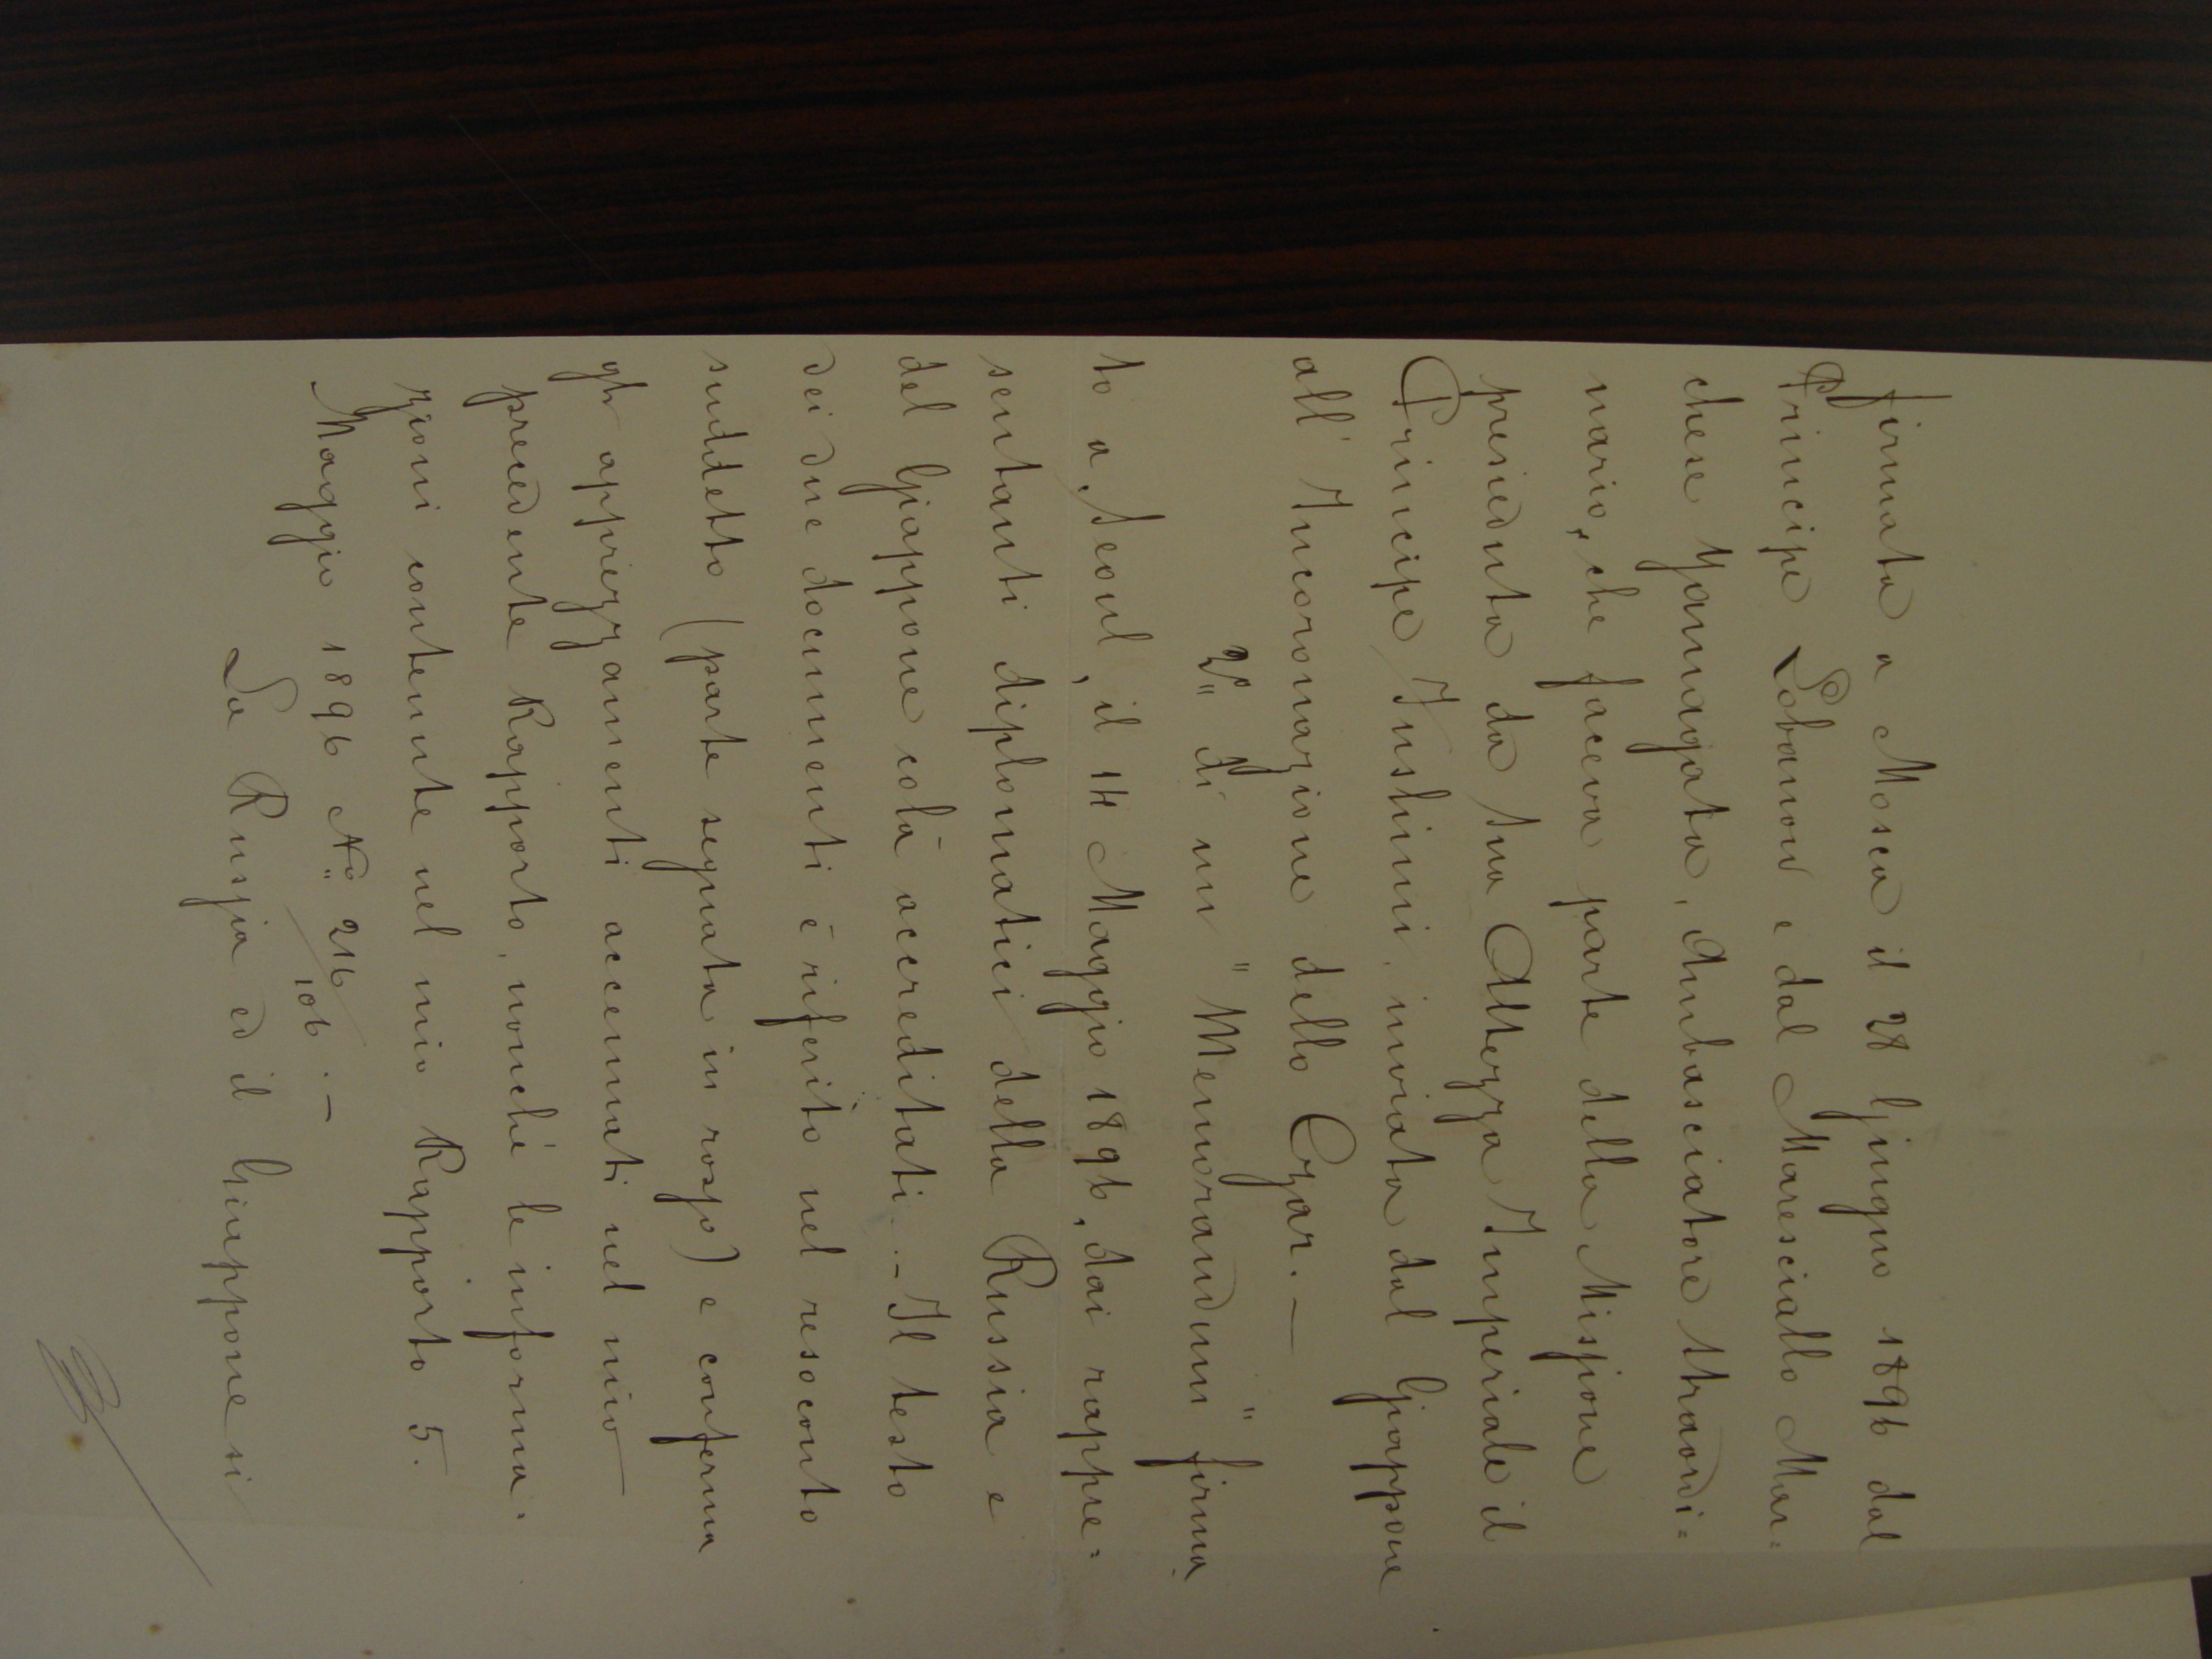 firmata a Mosca il 28 Giugno 1896 dal
Principe Lobanow e dal Maresciallo Mar=
chese Yamagata, Ambasciatore straordi=
nario, che faceva parte della Missione
presieduta da Sua Altezza Imperiale il
Principe Fushimi, inviata dal Giappone
all' Incoronazione dello Czar. —
2º di un "Memorandum" firma=
to a Seoul, il 14 Maggio 1896, dai rappre=
sentanti diplomatici della Russia e
del Giappone colà accreditati. - Il testo
dei due documenti è riferito nel resoconto
suddetto (parte segnata in rosso) e conferma
gli apprezzamenti accennati nel mio
precedente Rapporto, nonchè le informa=
zioni contenute nel mio Rapporto 5.
Maggio 1896 Nº 216/106. —
La Russia ed il Giappone si